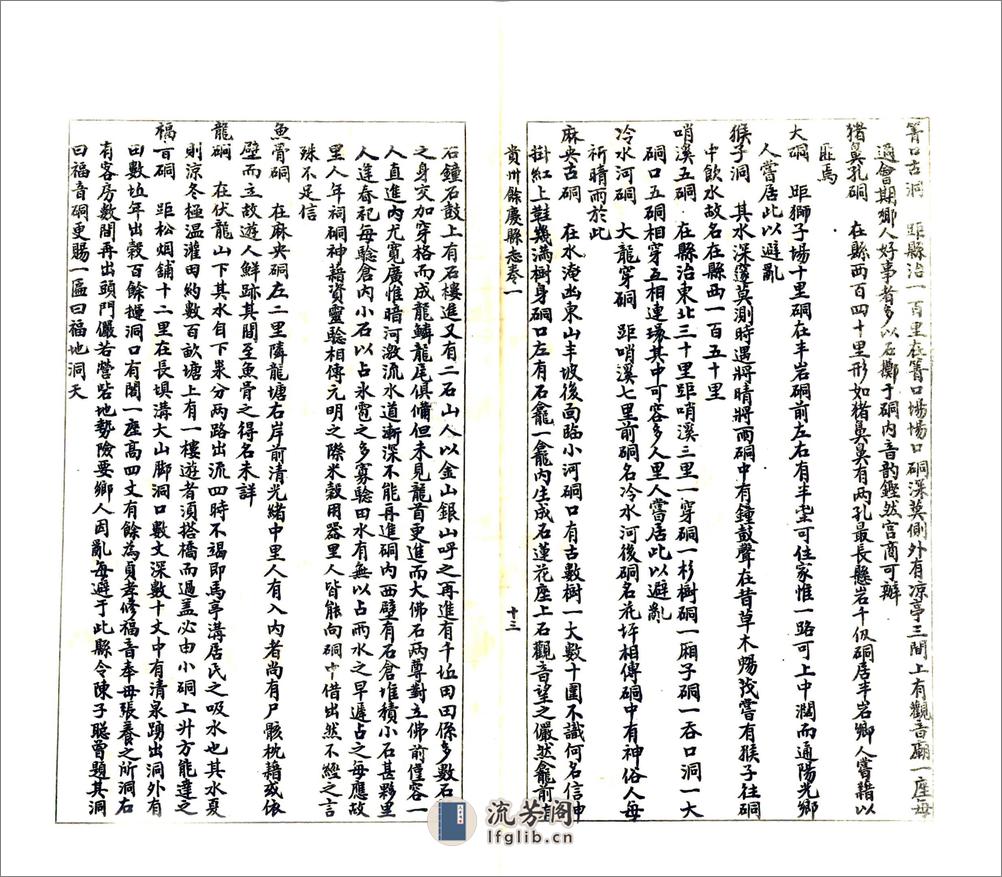 箐口古洞 距縣治一百里在箐口塲塲口硐深莫測外有凉亭三間上有觀音廟一座每
遇會期鄉人好事者多以石擲于硐内音韵鏗然宫商可辨
猪鼻孔硐 在縣西百四十里形如猪鼻鼻有两孔最長懸岩千仭硐居半岩鄉人嘗藉以
匪馬
大硐 距獅子場十里硐在半岩硐前左右有半坔可住家惟一路可上中濶而通陽光鄉
人嘗居此以避亂
猴子洞 其水深邃莫測時遇將晴將雨硐中有鐘鼓聲在昔草木暢茂嘗有猴子往硐
中飲水故名在縣西一百五十里
哨溪五硐 在縣治東北三十里距哨溪三里一穿硐一杉樹硐一厢子硐一吞口洞一大
硐口五硐相穿五相連塚其中可容多人里人嘗居此以避亂
冷水河硐 大龍穿硐 距哨溪七里前硐名冷水河後硐名花圲相傳硐中有神俗人每
祈晴雨於此
麻央古硐 在水淹凼東山半坡後面臨小河硐口有古數樹一大數十圍不識何名信申
掛紅上鞋幾满樹身硐口左有石龕一龕内生成石蓮花座上石觀音望之儼然龕前
貴州餘慶縣志卷一
十三
石鐘石鼓上有石樓進又有二石山人以金山銀山呼之再進有千坵田田條多數石
之身交加穿格而成龍鱗龍尾俱備但未見龍首更進而大佛石两尊對立佛前僅容一
人直進内尤寛廣惟暗河激流水道漸深不能再進硐内西壁有石倉堆積小石甚夥里
人逢春祀每騐倉内小石以占氷雹之多寡騐田水有無以占雨水之早遲占之每應故
里人年祠硐神藉資靈騐相傳元明之際米穀用器里人皆能向硐中借出然不經之言
殊不足信
魚骨硐 在麻央硐左二里隣龍塘右岸前清光緒中里人有入内者尚有尸骸枕藉或依
壁而立故遊人鮮跡其間至魚骨之得名未詳
龍硐 在伏龍山下其水自下泉分两路出流四時不竭即馬亭溝居民之吸水也其水夏
則涼冬極温灌田約數百畝塘上有一樓遊者須搭橋而過盖必由小硐上升方能達之
福百硐 距松烟舖十二里在長埧溝大山脚洞口數丈深數十丈中有清泉踴出洞外有
田數坵年出榖百餘挑洞口有閣一座高四丈有餘為貞孝修福音奉母張養之所洞右
有客房數間再出頭門儼若營砦地勢險要鄉人因亂每避于此縣令陳子聪曾題其洞
曰福音硐更賜一匾曰福地洞天
流芳阁
lfglib.cn